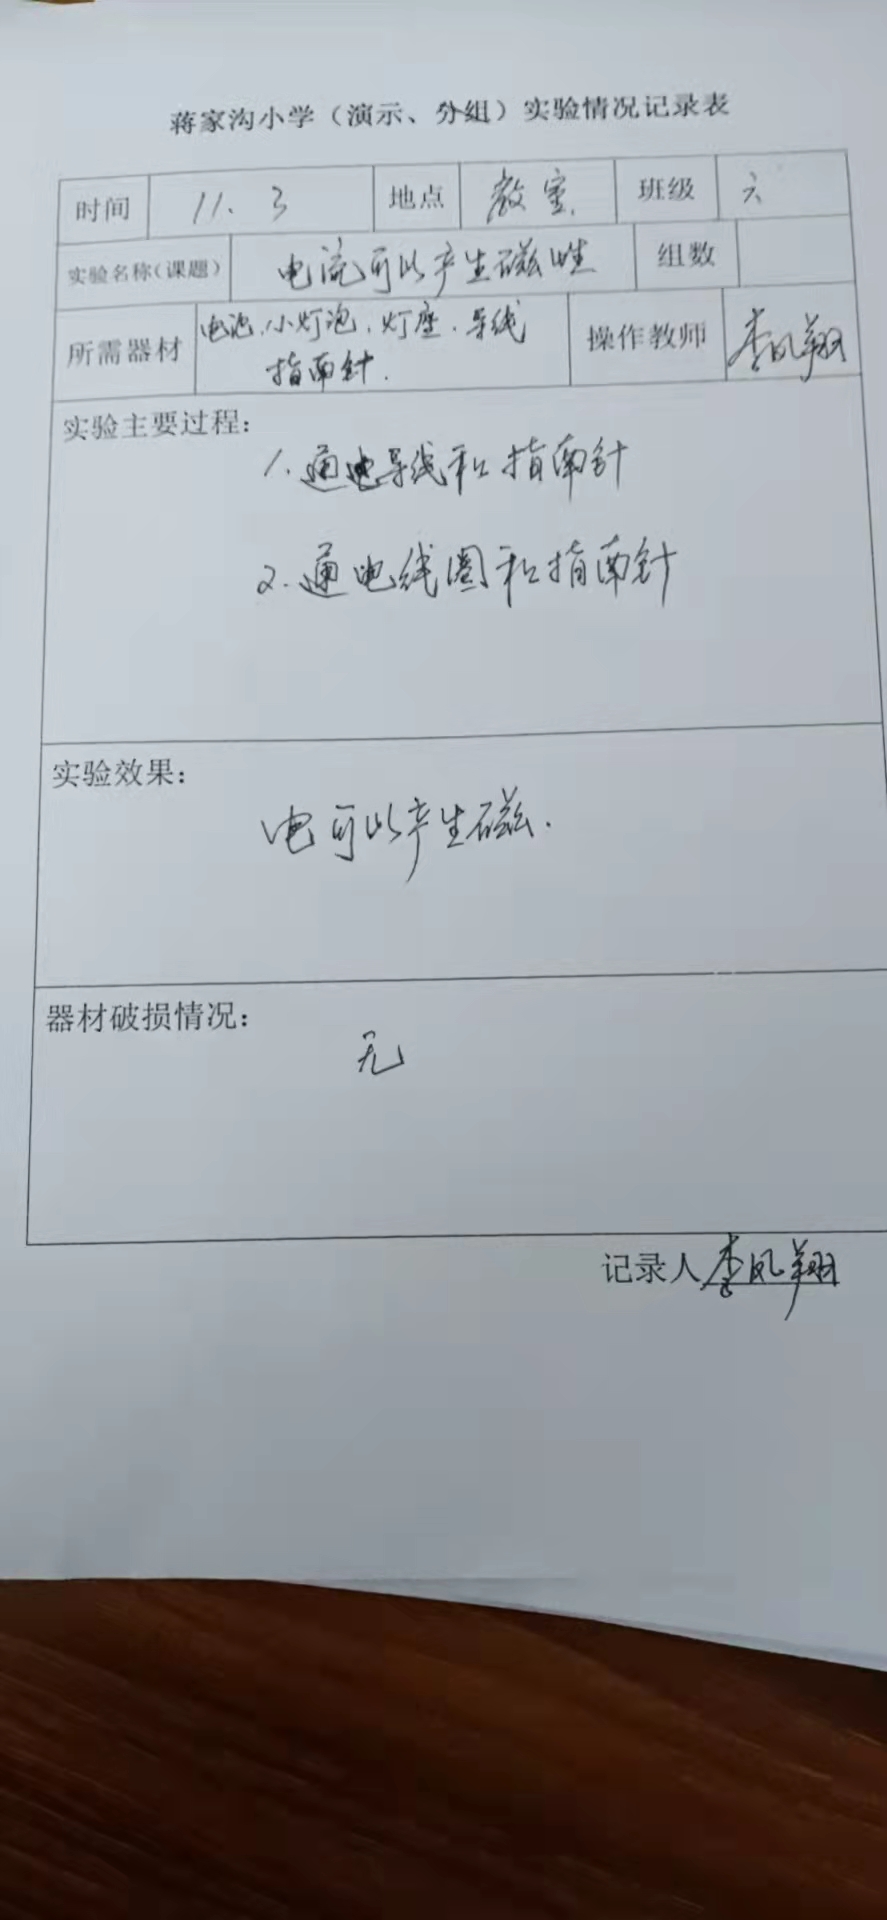 蒋家沟小学（演示、分组）实验情况记录表
时间 11.3 地点 教室. 班级 六
实验名称（课题） 电流可以产生磁性 组数
所需器材 电池、小灯泡、灯座、导线 操作教师 李凤翔
指南针.
实验主要过程：
1. 通电导线和指南针
2. 通电线圈和指南针
实验效果：
电可以产生磁.
器材破损情况：
无
记录人 李凤翔